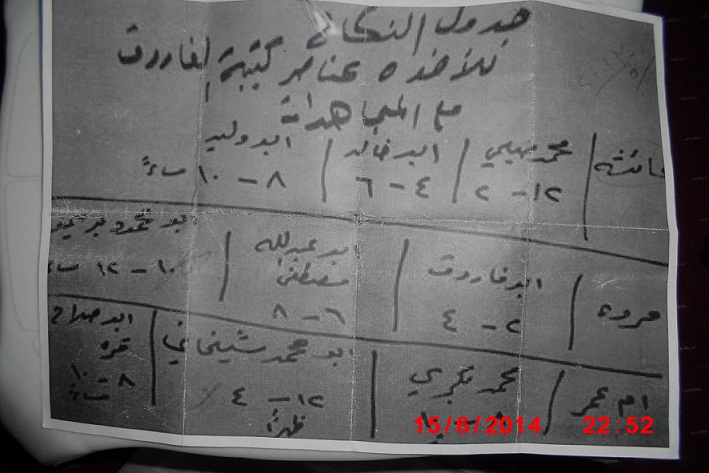 جدول النكاح
للأخوه عناصر كتيبة الفاروق
مع المجاهدات
عائشة | محمد | ابو خالد | ابو وليد
١٢ - ٢ | ٤ - ٦ | ٨ - ١٠ مساءً
مروه | ابو فاروق | ابو عبدالله مصطفى | ابو محمود
٢ - ٤ | ٦ - ٨ | ١٠ - ١٢
ام عمر | محمد | ابو محمد شيشاني | ابو صلاح
١٢ - ٤ ظهراً | ٨ ١٠
15/6/2014 22:52